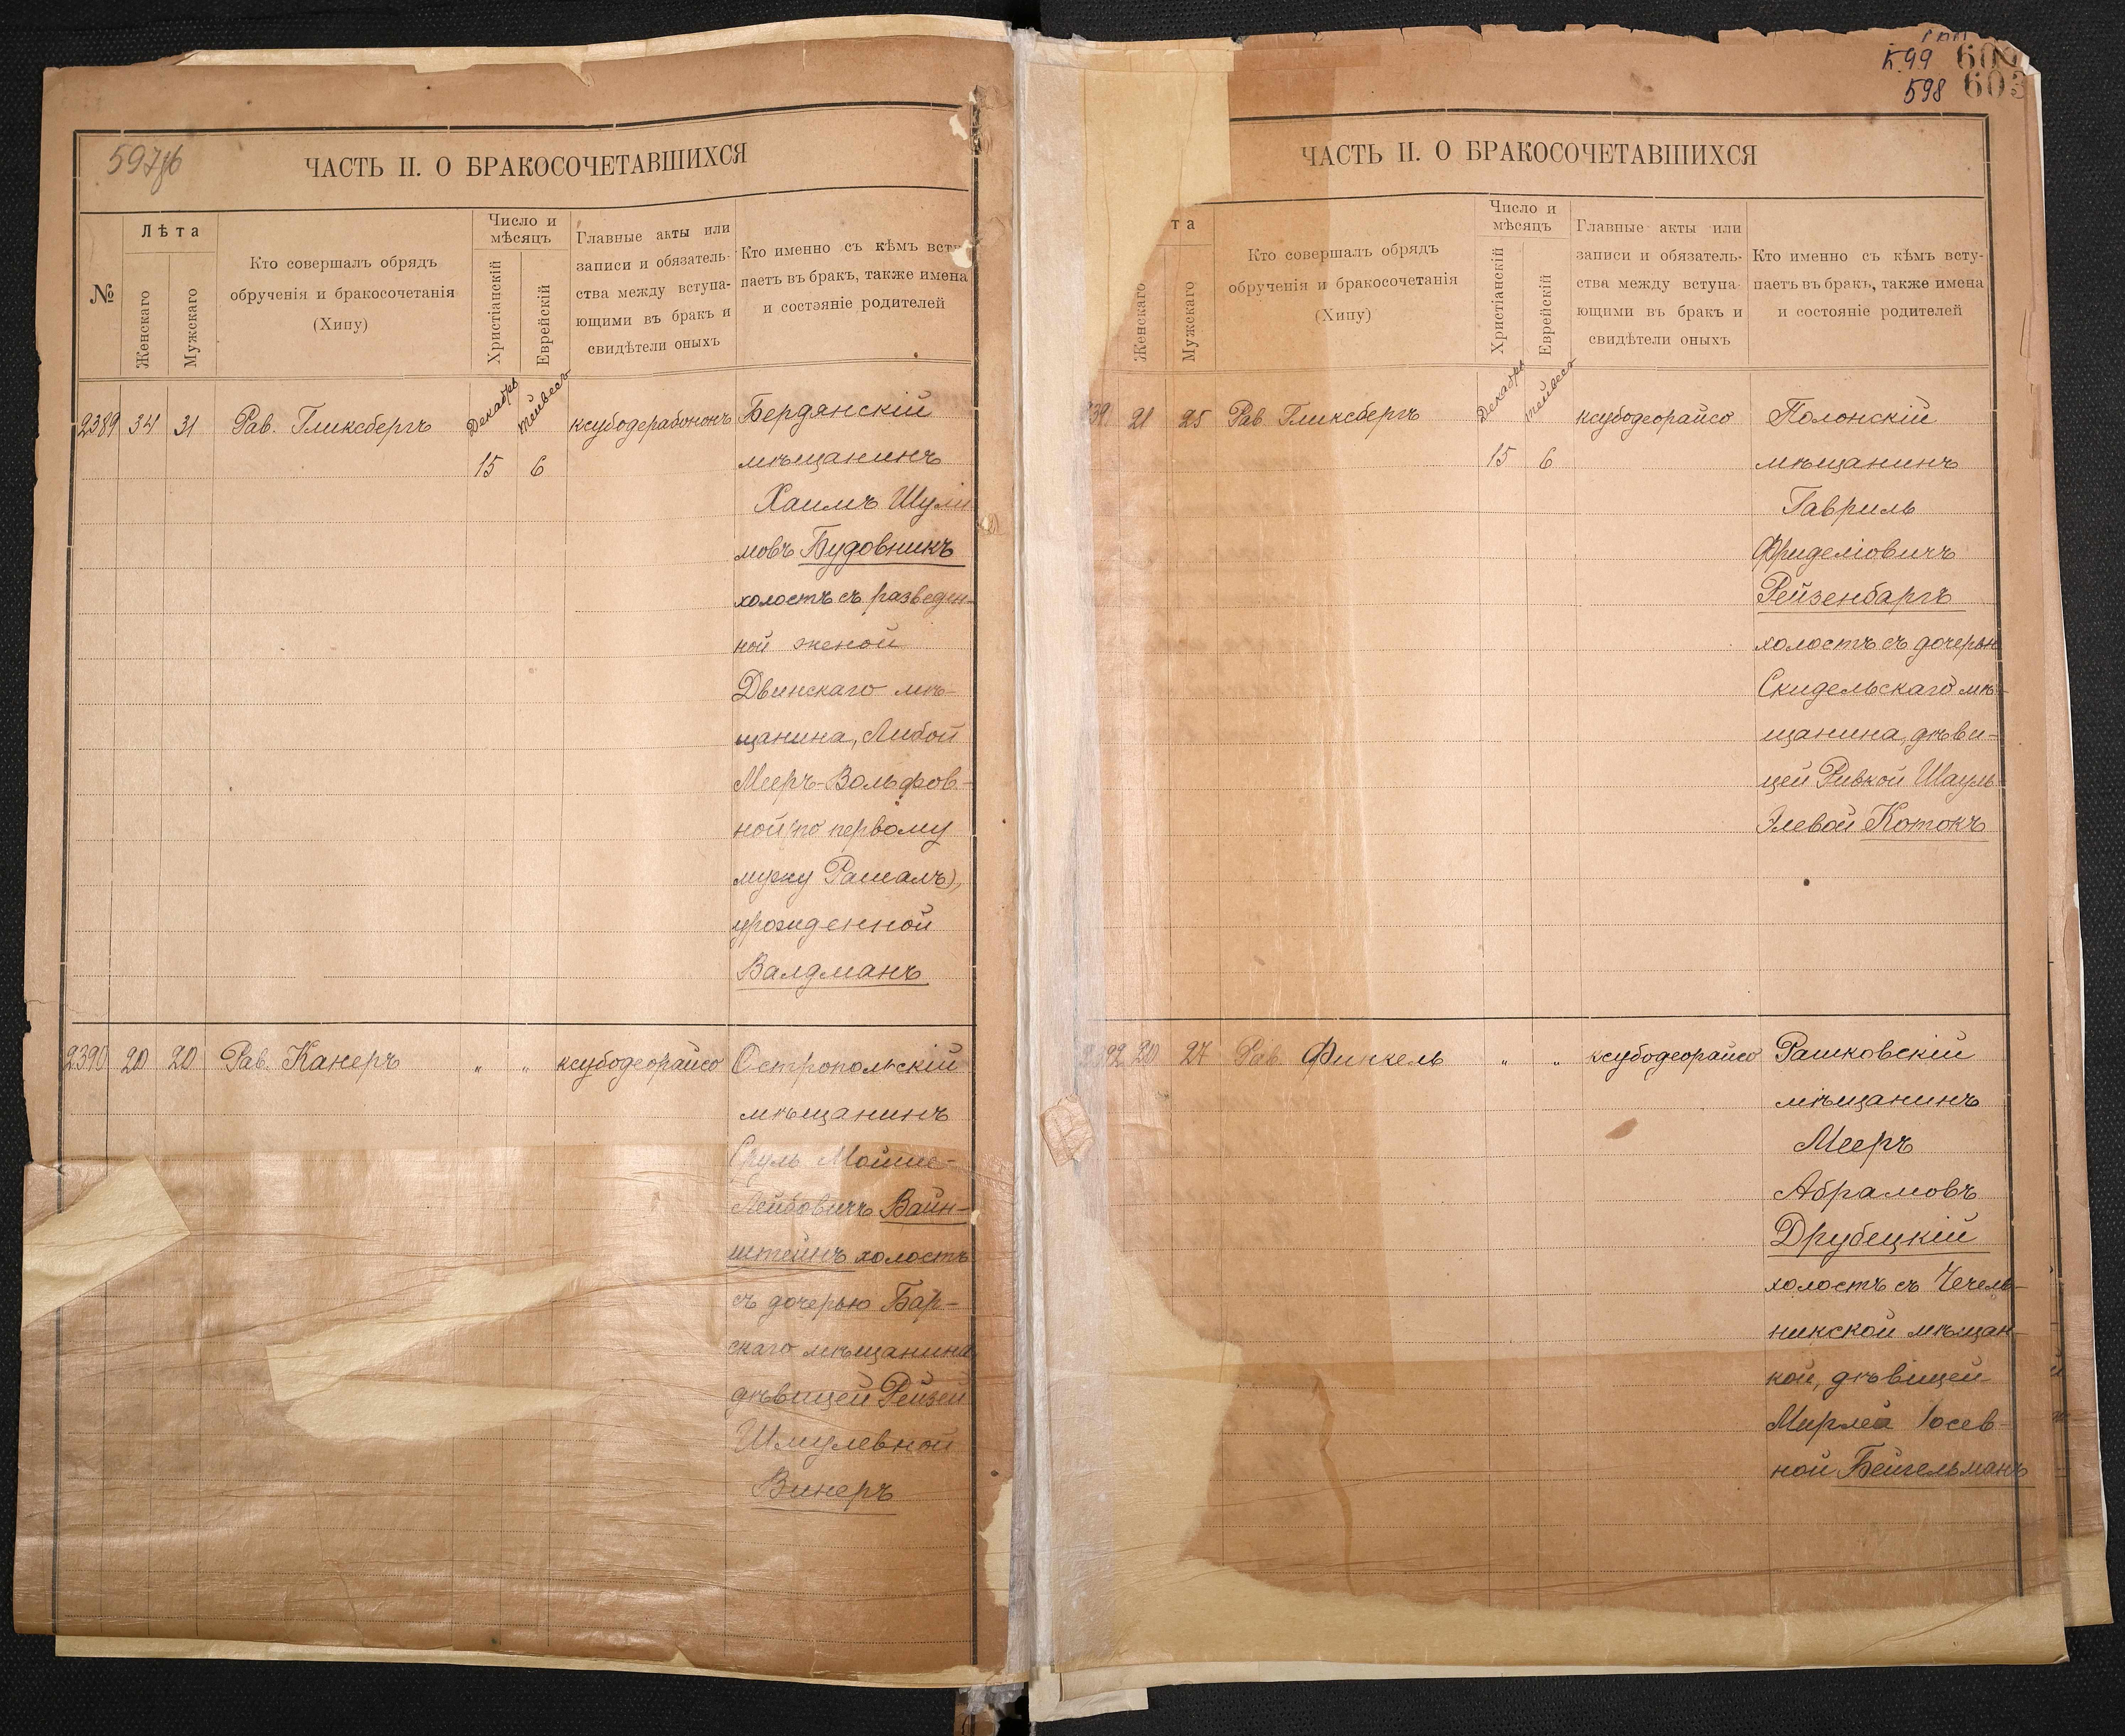 597 об
ЧАСТЬ II. О БРАКОСОЧЕТАВШИХСЯ
№
Лѣта
Женскаго
Мужскаго
Кто совершалъ обрядъ
обрученія и бракосочетанія
(Хипу)
Число и
мѣсяцъ
Христіанскій
Еврейскій
Главные акты или
записи и обязатель-
ства между вступа-
ющими въ бракъ и
свидѣтели оныхъ
Кто именно съ кѣмъ всту
паетъ въ бракъ, также имена
и состояніе родителей
2389 34 31 Рав. Гликсбергъ Декабрь Тейвесъ ксубодерабононъ Бердянскій
15 6 мѣщанинъ
Хаимъ Шули
мовъ Будовникъ
холостъ съ разведен-
ной женой
Двинскаго мѣ-
щанина, Либой
Мееръ-Вольфов-
ной (по первому
мужу Рашалъ),
урожденной
Валдманъ
2390 20 20 Рав. Канеръ " " ксубодеорайсо Остропольскій
мѣщанинъ
Сруль Мойше-
Лейбовичъ Вайн-
штейнъ холостъ
съ дочерью Бар-
скаго мѣщанина
дѣвицей Рейзей
Шмулевной
Винеръ
599 602
598 603
ЧАСТЬ II. О БРАКОСОЧЕТАВШИХСЯ
та
Женскаго
Мужскаго
Кто совершалъ обрядъ
обрученія и бракосочетанія
(Хипу)
Число и
мѣсяцъ
Христіанскій
Еврейскій
Главные акты или
записи и обязатель-
ства между вступа-
ющими въ бракъ и
свидѣтели оныхъ
Кто именно съ кѣмъ всту-
паетъ въ бракъ, также имена
и состояніе родителей
239 21 25 Рав. Гликсбергъ Декабрь Тейвесъ ксубодеорайсо Полонскій
15 6 мѣщанинъ
Гавриль
Фриделіовичъ
Рейзенбаргъ
холостъ съ дочерью
Скидельскаго мѣ-
щанина, дѣви-
цей Ривкой Шауль
Элевой Котокъ
2392 20 27 Рав. Финкель " " ксубодеорайсо Рашковскій
мѣщанинъ
Мееръ
Абрамовъ
Друбецкій
холостъ съ Чечель-
никской мѣщан-
кой, дѣвицей
Мирлей Іосев-
ной Бейгельманъ